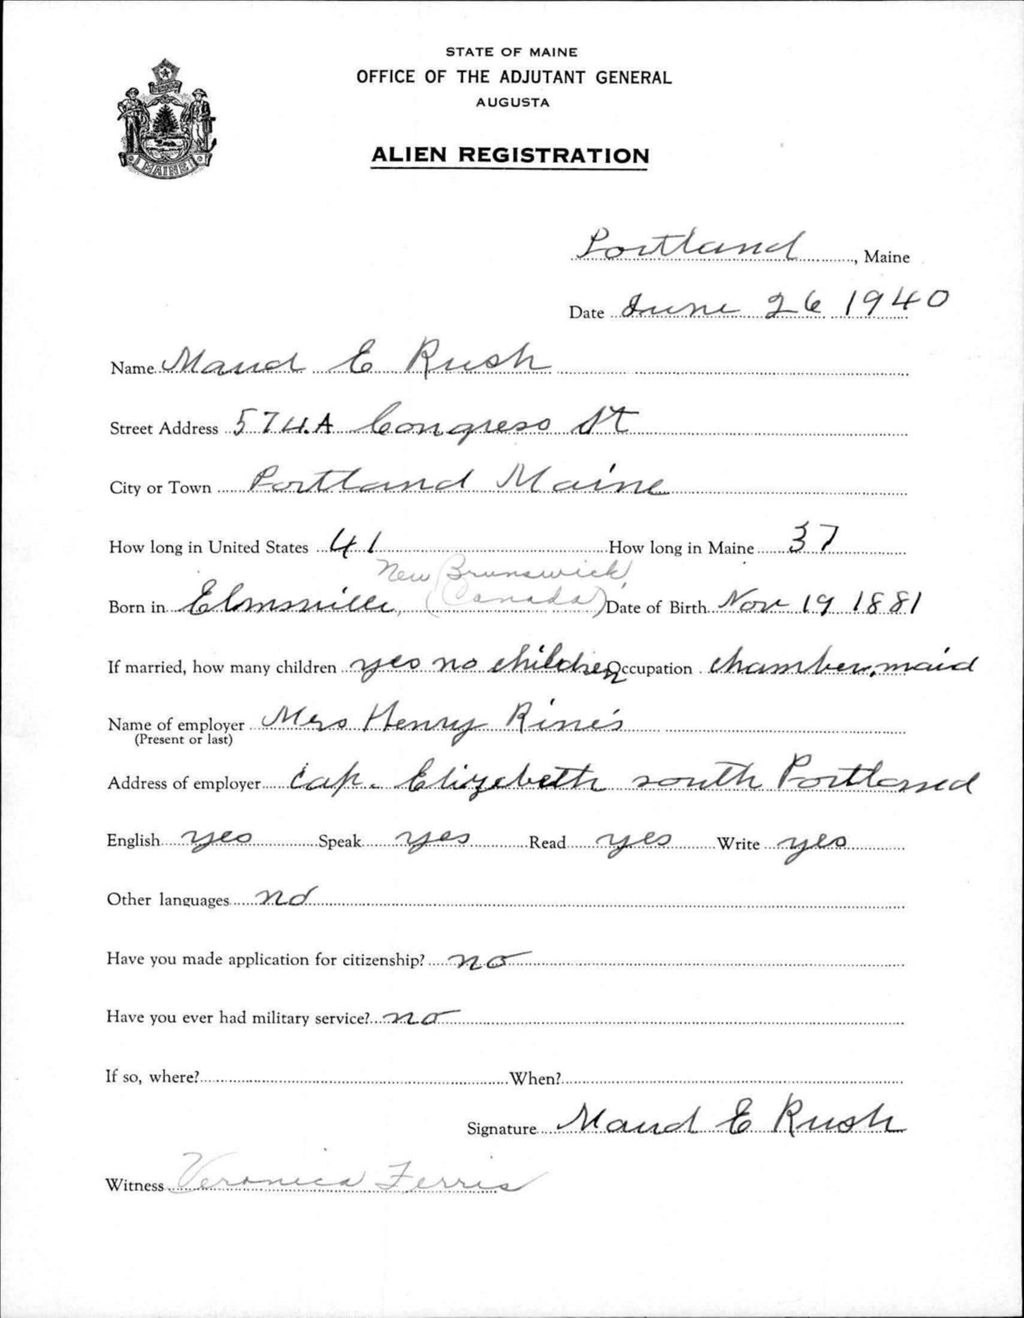 STATE OF MAINE
OFFICE OF THE ADJUTANT GENERAL
AUGUSTA
ALIEN REGISTRATION
MAINE
Portland, Maine
Date June 26 1940
Name Maud E Rush
Street Address 574A Congress St
City or Town Portland Maine
How long in United States 41 How long in Maine 37
New Brunswick
Born in Elmsville, (Canada) Date of Birth Nov 19 1881
If married, how many children yes no children Occupation chamber maid
Name of employer Mrs Henry Rines
(Present or last)
Address of employer Cap. Elizebeth south Portland
English yes Speak yes Read yes Write yes
Other languages no
Have you made application for citizenship? no
Have you ever had military service? no
If so, where? When?
Signature Maud E Rush
Witness Veronica Ferris